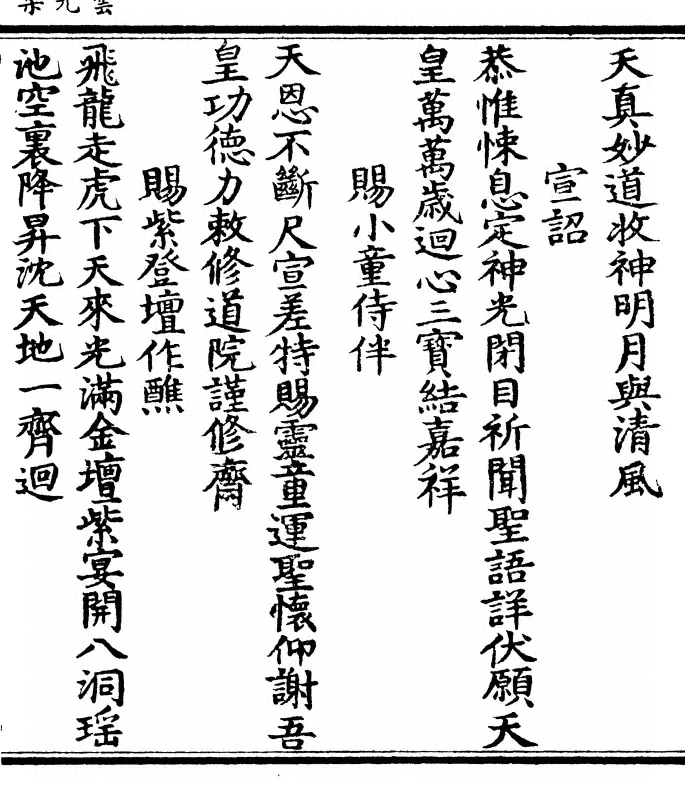 天真妙道收神明月與清風
宣詔
恭惟悚息定神光閉目祈聞聖語詳伏願天
皇萬萬歲迴心三寶結嘉祥
賜小童侍伴
天恩不斷尺宣差特賜靈童運聖懷仰謝吾
皇功德力敕修道院謹修齋
賜紫登壇作醮
飛龍走虎下天來光滿金壇紫宴開八洞瑶
池空裏降昇沈天地一齊迴